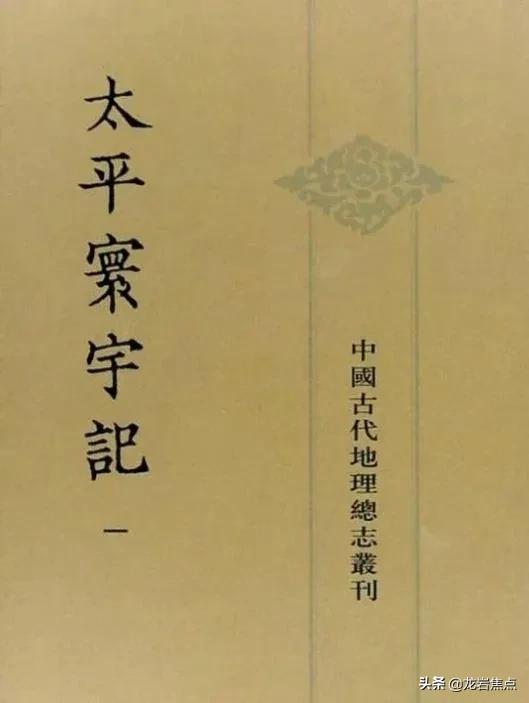 太平寰宇記
一
中國古代地理總志叢刊
头条 @龙岩焦点